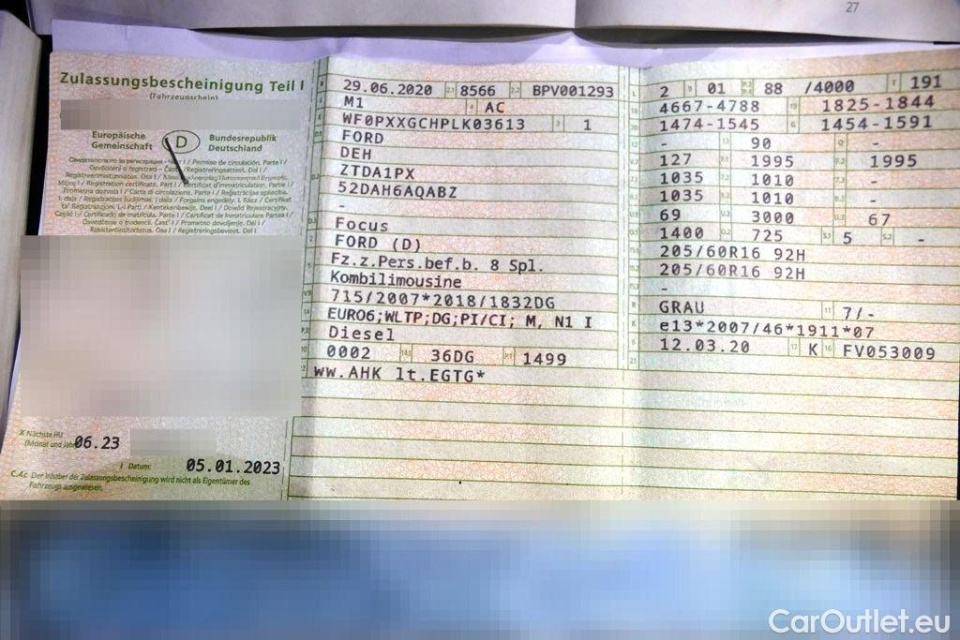 27
Zulassungsbescheinigung Teil I
(Fahrzeugschein)
Europäische Gemeinschaft
D
Bundesrepublik Deutschland
X Nächste HU
(Monat und Jahr) 06.23
I Datum: 05.01.2023
C.4c Der Inhaber der Zulassungsbescheinigung wird nicht als Eigentümer des
Fahrzeugs ausgewiesen.
29.06.2020 8566 BPV001293
M1 AC
WF0PXXGCHPLK03613 1
FORD
DEH
ZTDA1PX
52DAH6AQABZ
-
Focus
FORD (D)
Fz.z.Pers.bef.b. 8 Spl.
Kombilimousine
715/2007*2018/1832DG
EURO6;WLTP;DG;PI/CI; M, N1 I
Diesel
0002 36DG 1499
ww.AHK lt.EGTG*
2 01 88 /4000 191
4667-4788 1825-1844
1474-1545 1454-1591
- 90 - -
127 1995 1995
1035 1010 -
1035 1010 -
69 3000 67
1400 725 5 -
205/60R16 92H
205/60R16 92H
-
GRAU 7/-
e13*2007/46*1911*07
12.03.20 K FV053009
CarOutlet.eu